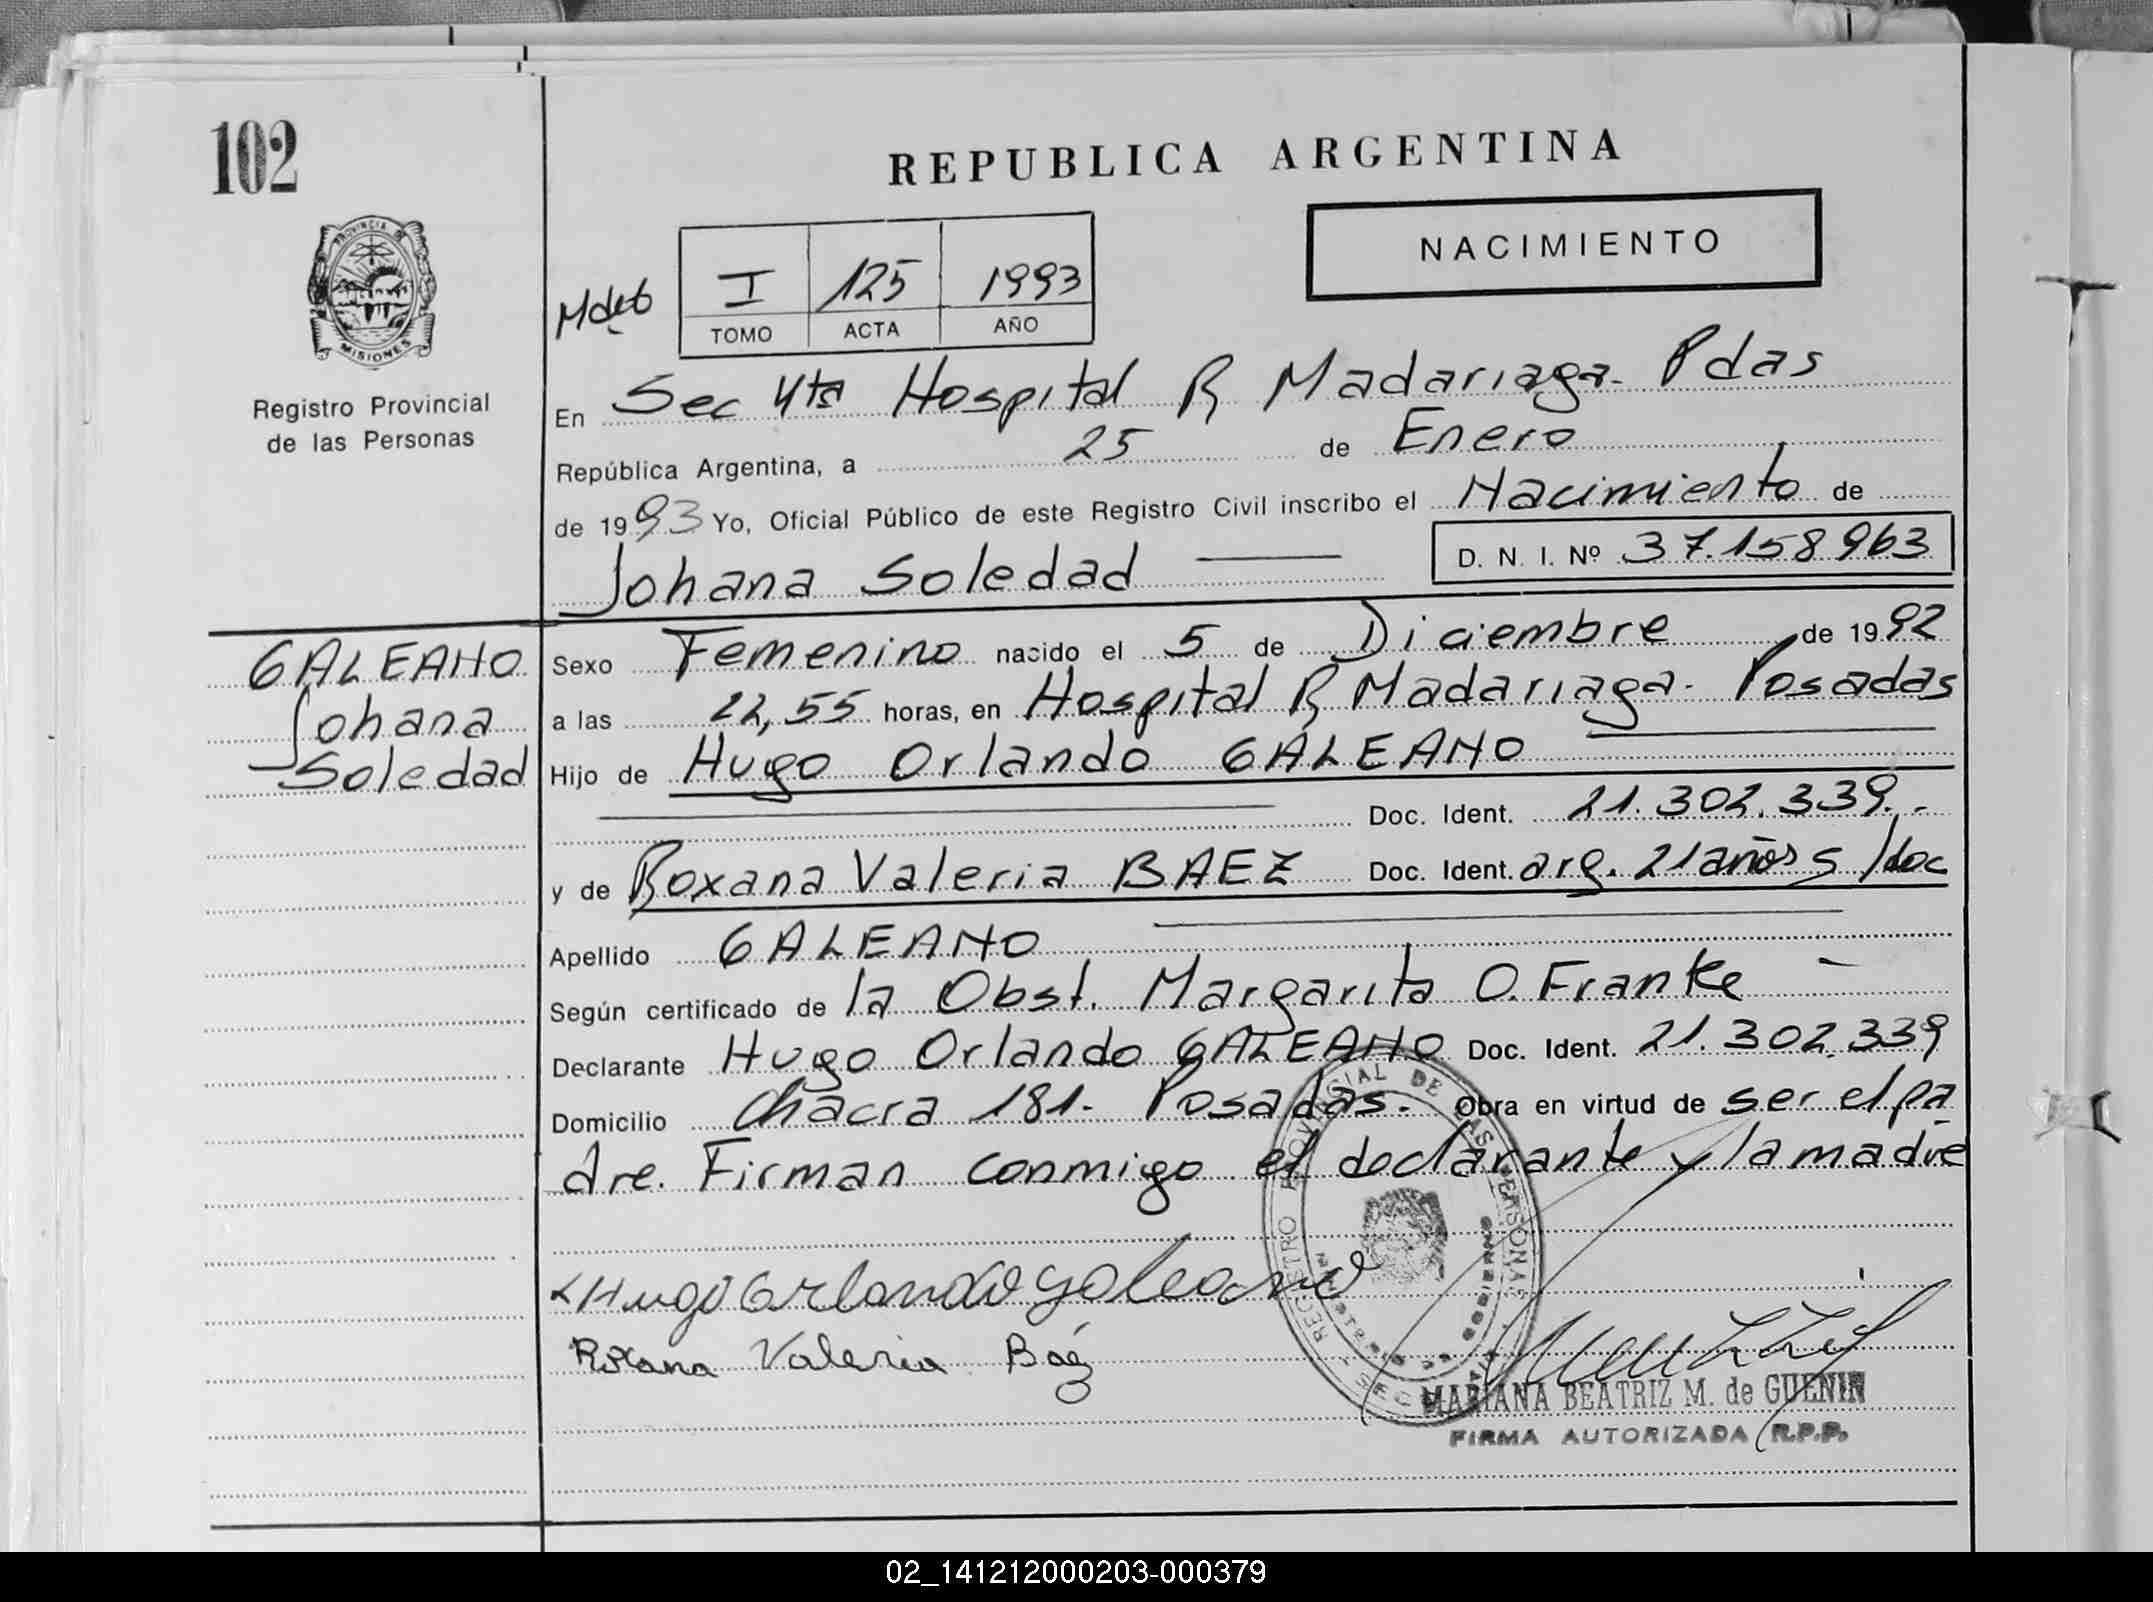 102
REPUBLICA ARGENTINA
NACIMIENTO
PROVINCIA DE
MISIONES
Registro Provincial
de las Personas
I 125 1993
TOMO ACTA AÑO
En Sec 4ta Hospital R Madariaga - Pdas
República Argentina, a 25 de Enero
de 1993 Yo, Oficial Público de este Registro Civil inscribo el Nacimiento de
Johana Soledad
D. N. I. Nº 37.158963
GALEANO
Johana
Soledad
Sexo Femenino nacido el 5 de Diciembre de 1992
a las 22,55 horas, en Hospital R Madariaga - Posadas
Hijo de Hugo Orlando GALEANO
Doc. Ident. 21.302.339.-
y de Roxana Valeria BAEZ Doc. Ident. arg. 21 años s/doc
Apellido GALEANO
Según certificado de la Obst. Margarita O. Franke -
Declarante Hugo Orlando GALEANO Doc. Ident. 21.302.339
Domicilio Chacra 181 - Posadas. Obra en virtud de ser el pa
dre. Firman conmigo el declarante y la madre
Hugo Orlando galeano
Roxana Valeria Báez
REGISTRO PROVINCIAL DE LAS PERSONAS
MARIANA BEATRIZ M. de GUENIN
FIRMA AUTORIZADA R.P.P.
02_141212000203-000379